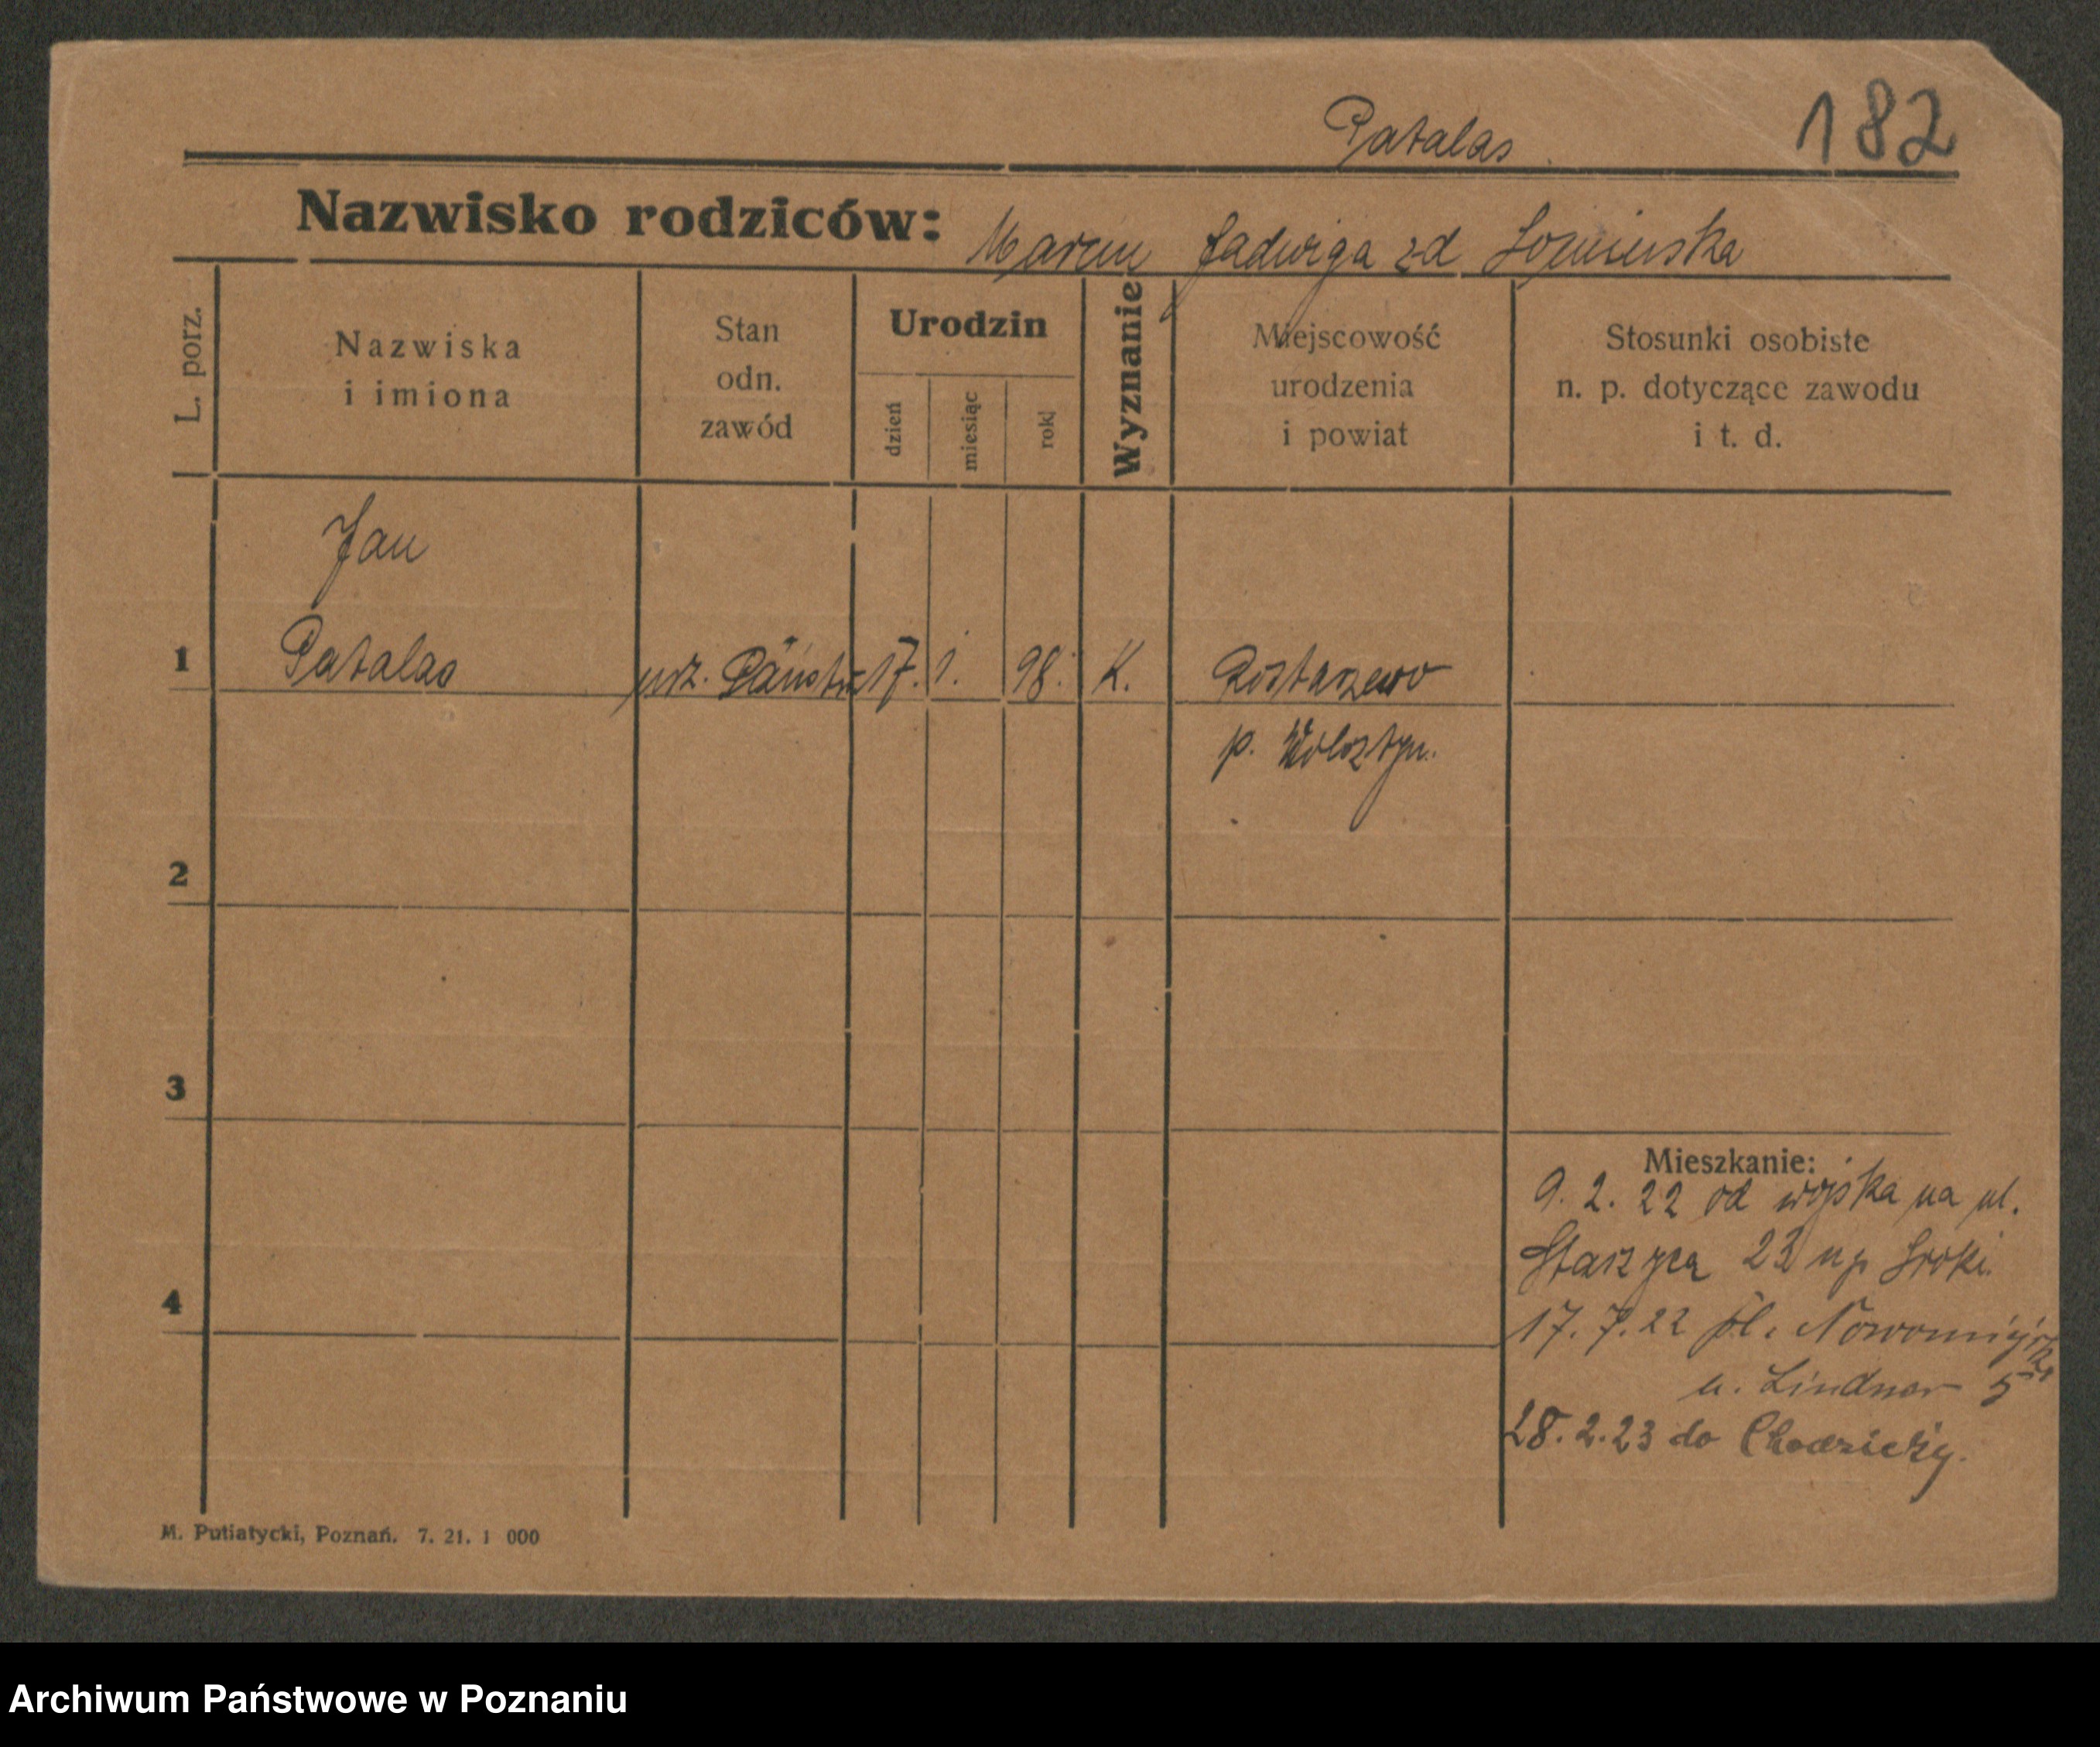 Patalas
182
Nazwisko rodziców: Marcin Jadwiga zd
L. porz.
Nazwiska
i imiona
Stan
odn.
zawód
Urodzin
dzień
miesiąc
rok
Wyznanie
Miejscowość
urodzenia
i powiat
Stosunki osobiste
n. p. dotyczące zawodu
i t. d.
Jan
1 Patalas urz. 17. 1. 98. K. Rostarzewo
p. Wolsztyn.
2
3
4
Mieszkanie:
9. 2. 22 od wojska na ul.
Staszyca 23 Sroki.
17. 7. 22 pl.
u. Lindner 5
28. 2. 23 do Chodzieży.
M. Putiatycki, Poznań. 7. 21. 1 000
Archiwum Państwowe w Poznaniu